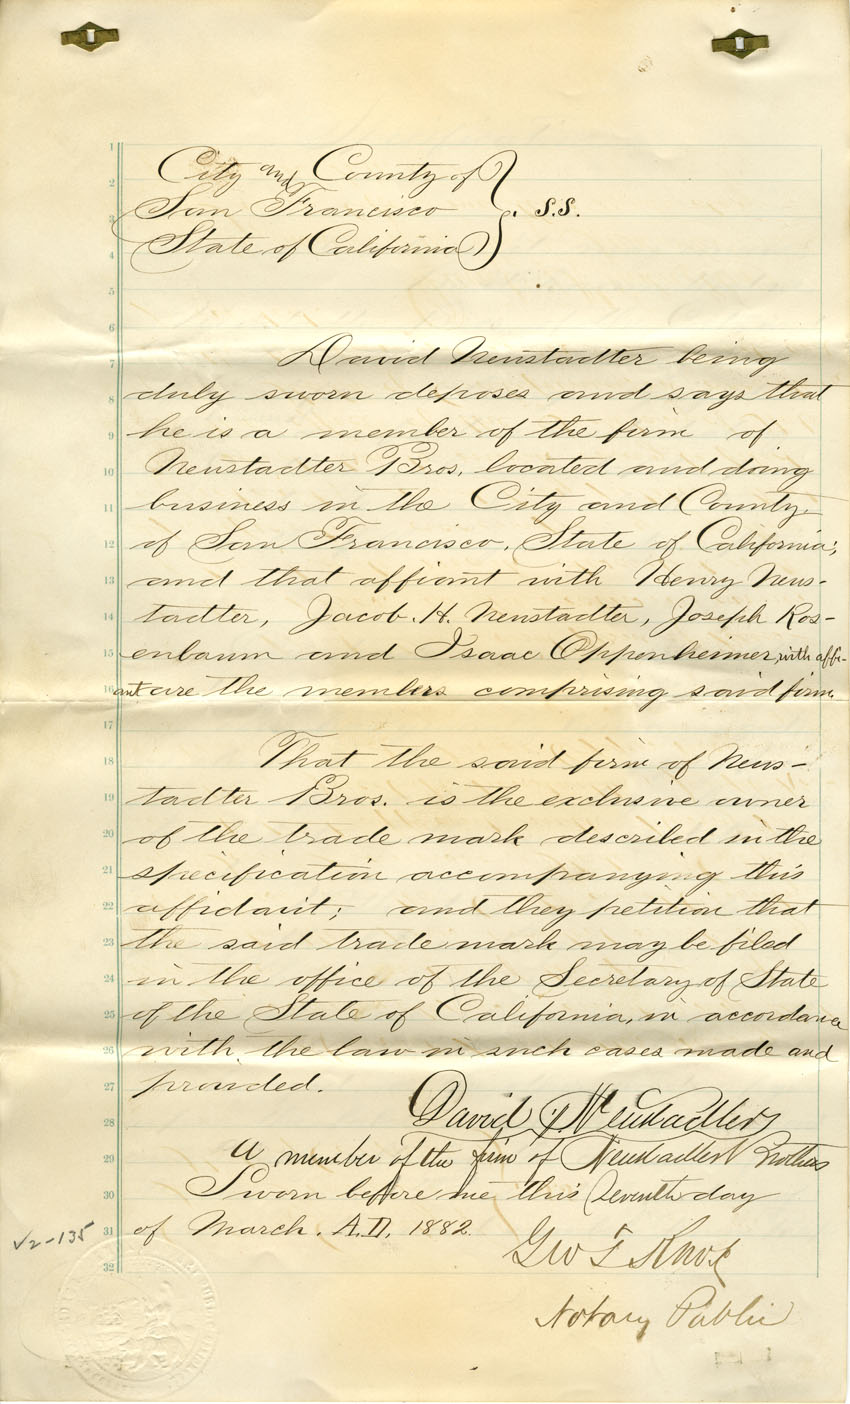 City and County of
San Francisco } S.S.
State of California
David Neustadter being
duly sworn deposes and says that
he is a member of the firm of
Neustadter Bros. located and doing
business in the City and County
of San Francisco, State of California;
and that affiant with Henry Neus-
tadter, Jacob. H. Neustadter, Joseph Ros-
enbaum and Isaac Oppenheimer, with affi-
ant are the members comprising said firm.
That the said firm of Neus-
tadter Bros. is the exclusive owner
of the trade mark described in the
specification accompanying this
affidavit; and they petition that
the said trade mark may be filed
in the office of the Secretary of State
of the State of California, in accordance
with the law in such cases made and
provided.
David Neustadter
A member of the firm of Neustadter Brothers
Sworn before me this seventh day
of March. A.D. 1882.
Geo T Knox
Notary Public
V2-135
1
2
3
4
5
6
7
8
9
10
11
12
13
14
15
16
17
18
19
20
21
22
23
24
25
26
27
28
29
30
31
32